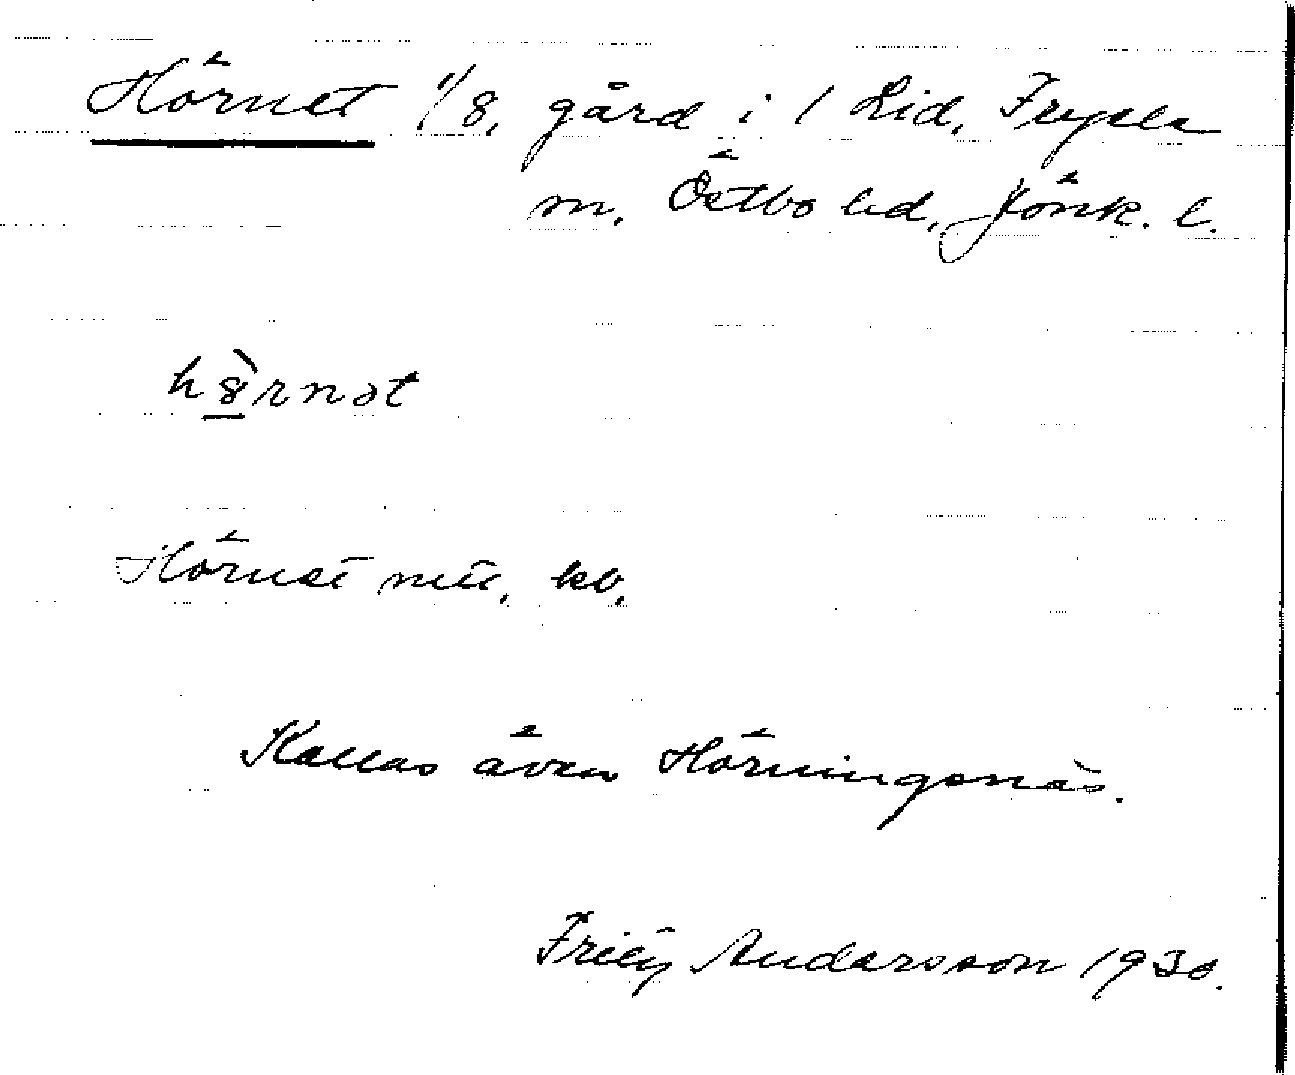 Hörnet 1/8, gård i 1 Lid, Fryele
sn, Östbo hd, Jönk. l.
hö̀rnət
Hörnet mtl. kb.
Kallas även Hörningsnäs.
Andersson 1930.